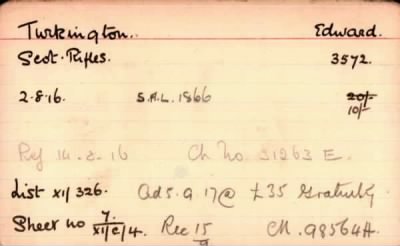 Turkington. Edward.
Scot. Rifles. 3572.
2.8.16. S.A.L. 1866 20/-
10/-
Ref 14.8.16 Ch No 31263 E.
List XI/326. Ads. 9.17 @ £35 Gratuity
Sheet no 7/XI/C/4. Rec 15/9 CM. 98564H.